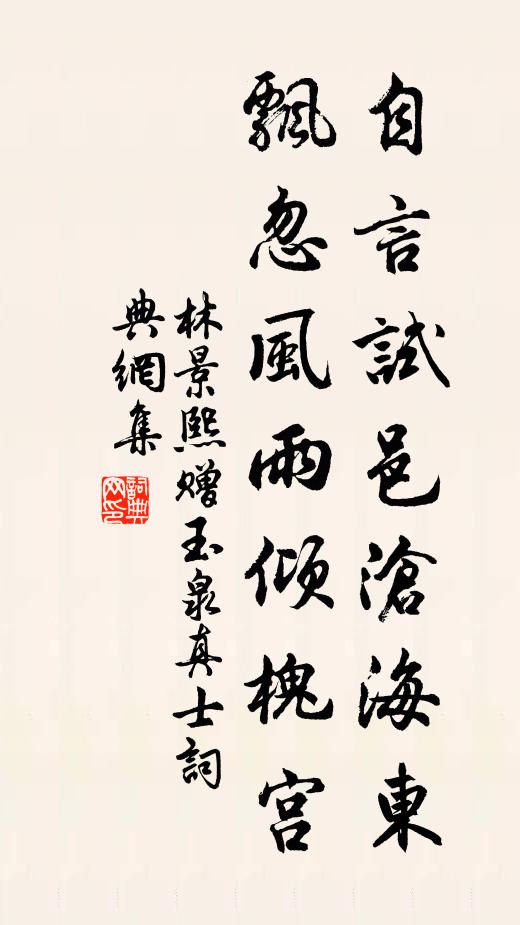 自言試邑滄海東
飄忽風雨傾槐宮
林景熙贈玉泉真士詞
典網集
詞典
网印